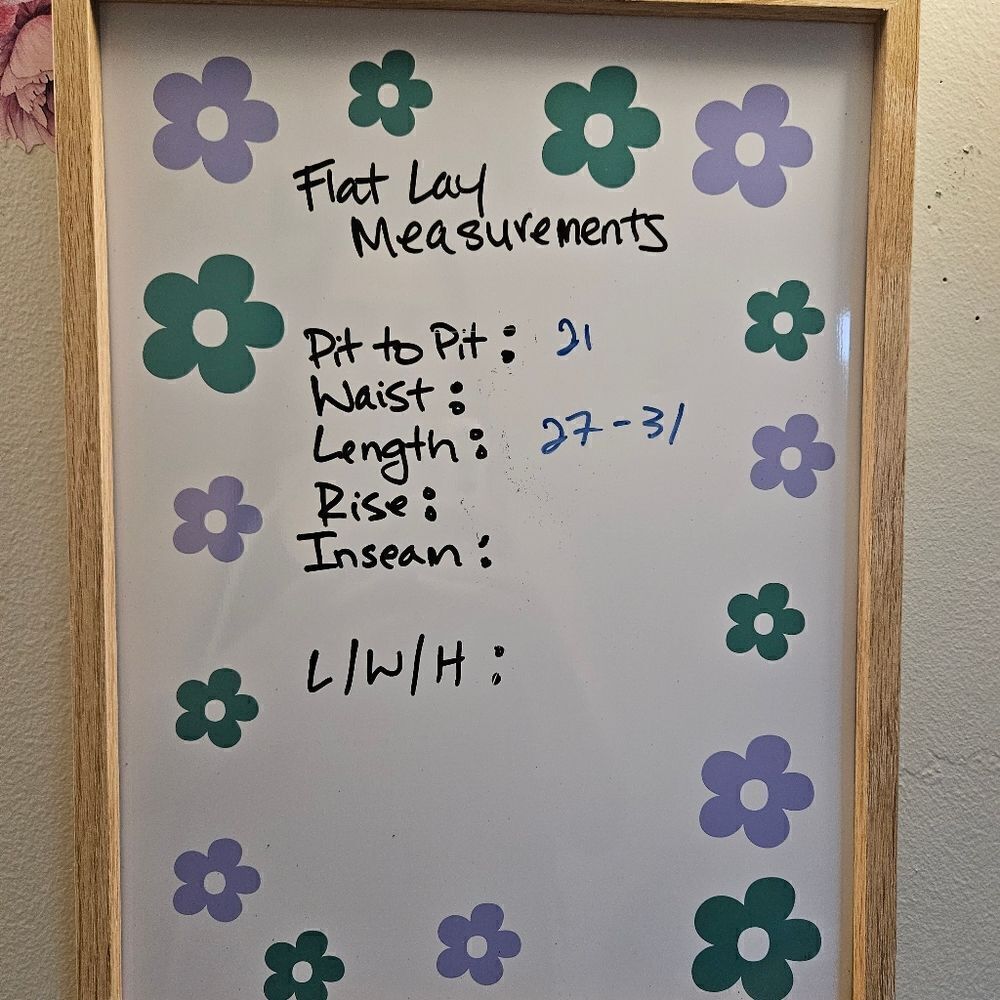 Flat Lay
Measurements
Pit to Pit: 21
Waist:
Length: 27-31
Rise:
Inseam:
L/W/H: